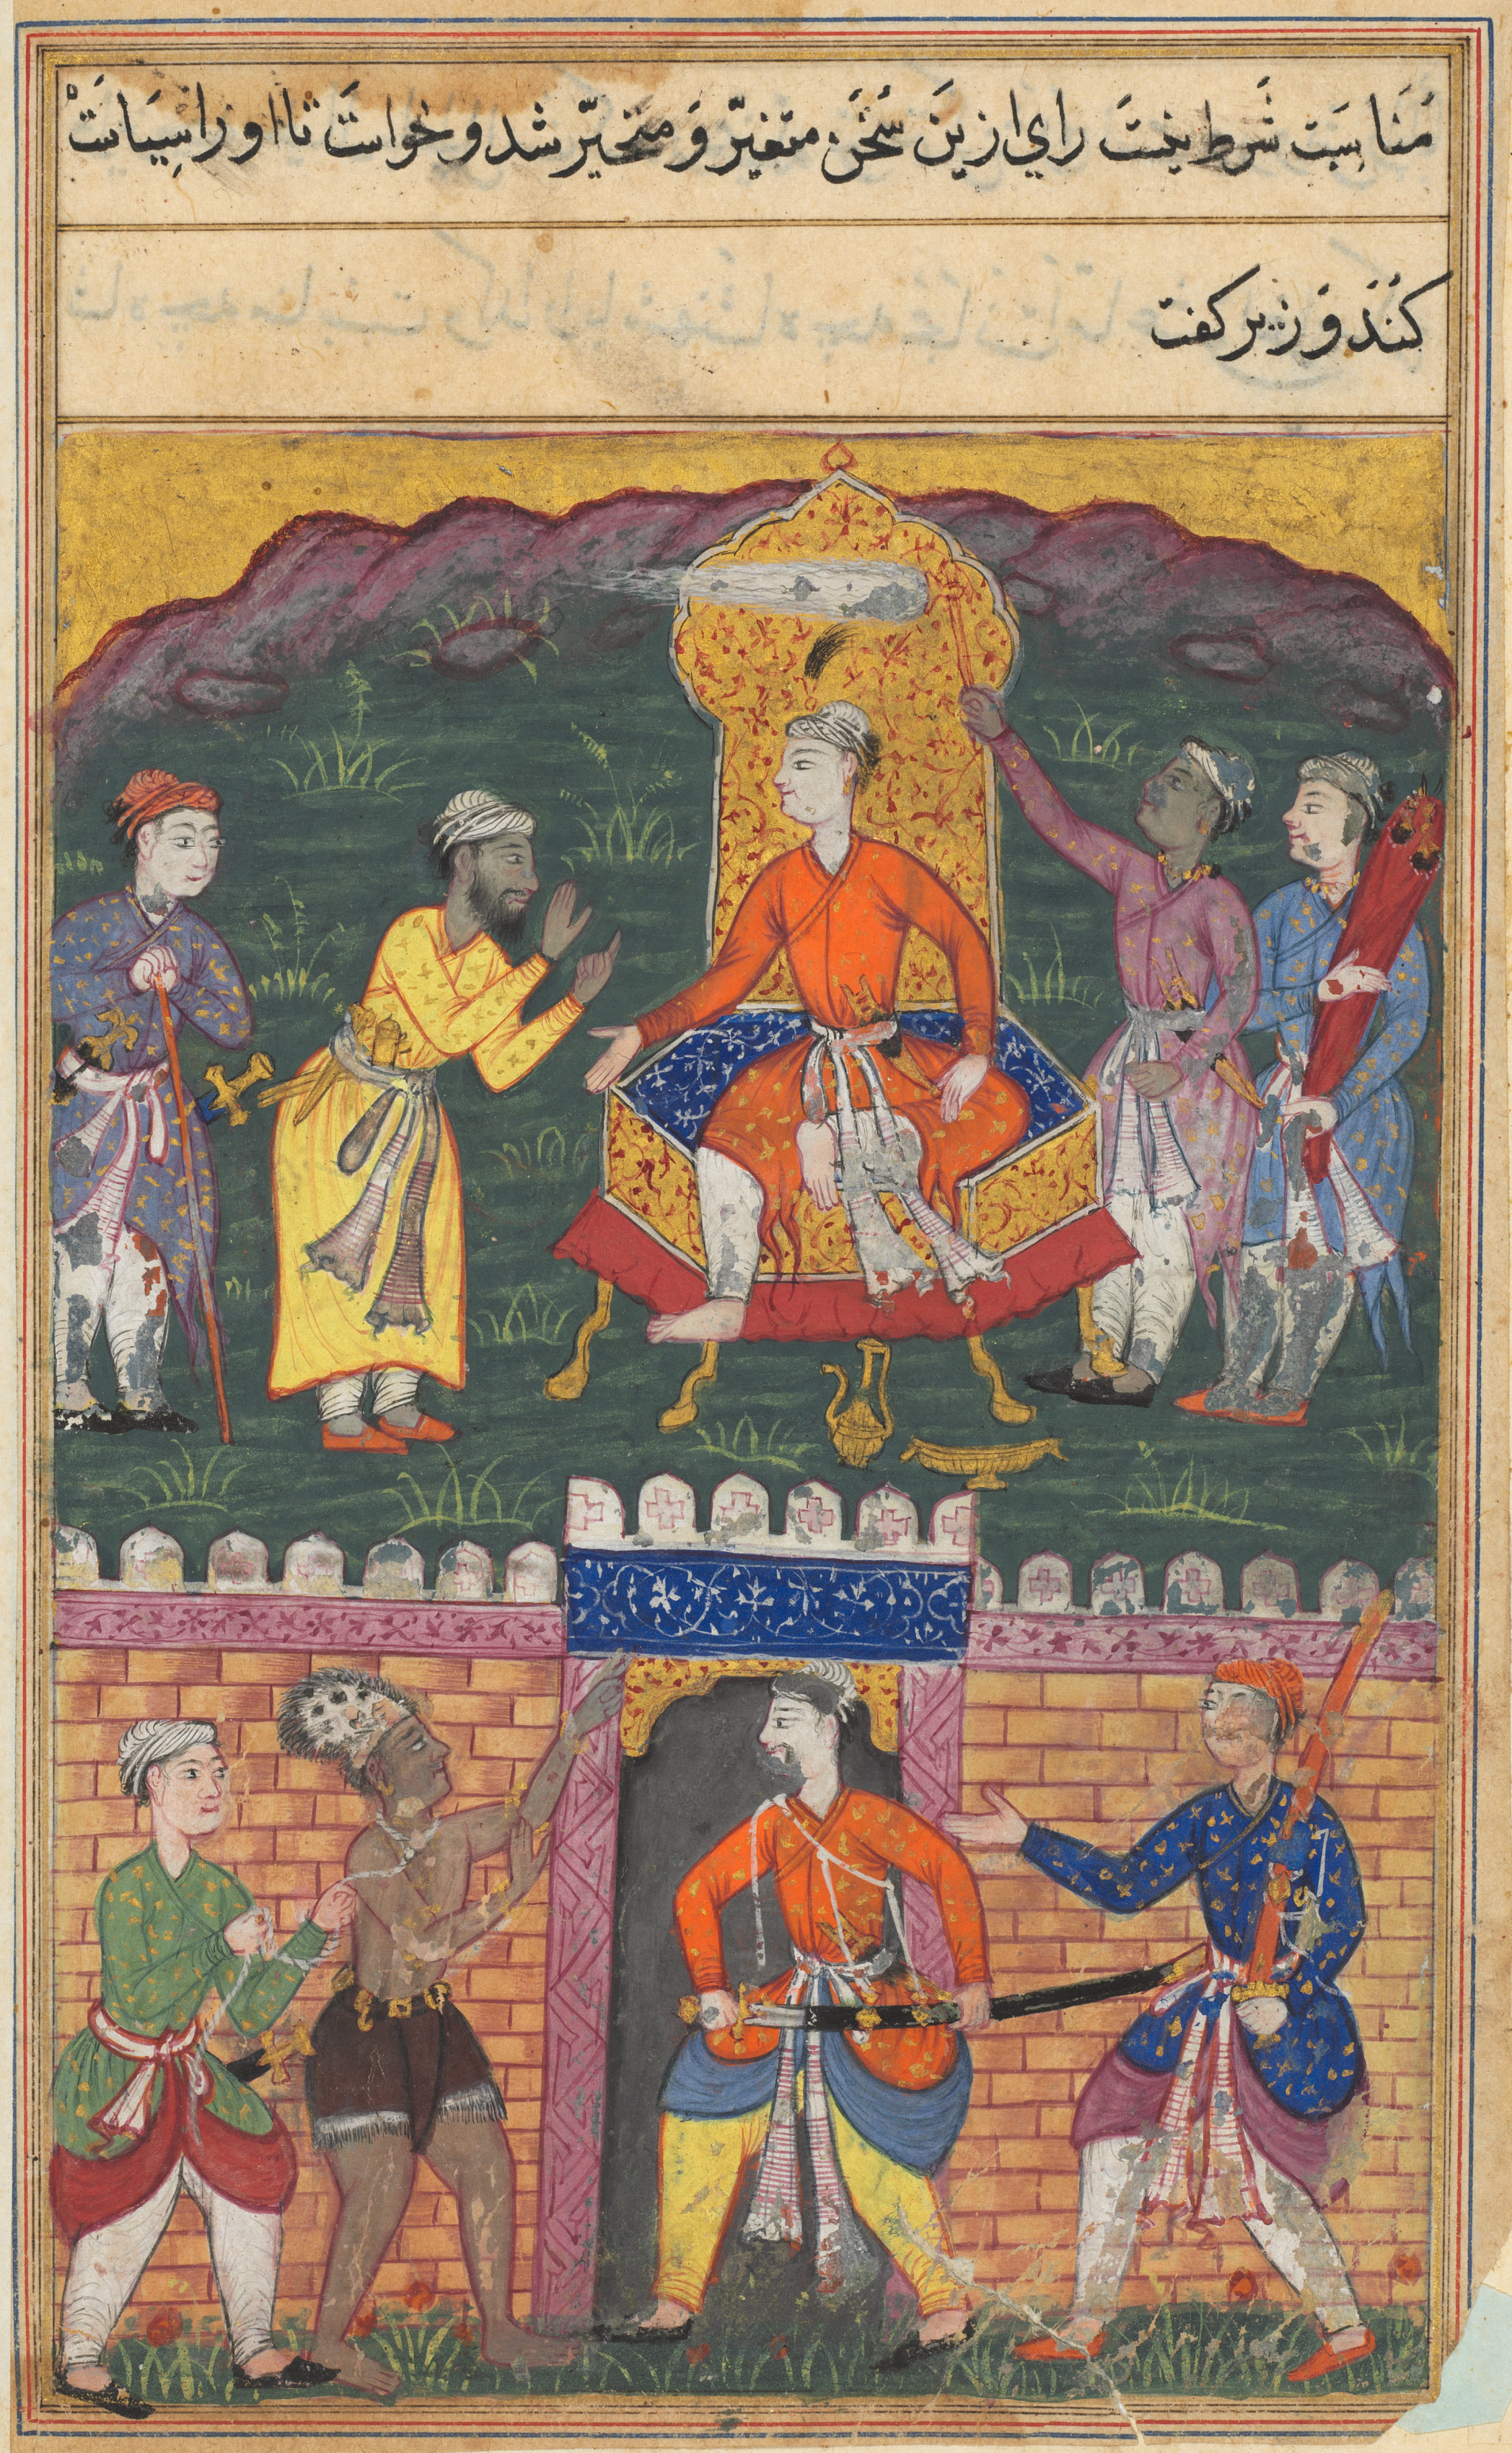 مُنَاسِبَت شَرط نیستَ رای ازینَ سُخَن متغیّر وَ متحیّر شد و خواستَ تا او را سِیَاسَتْ
کُنَنَد وَزیر کفت